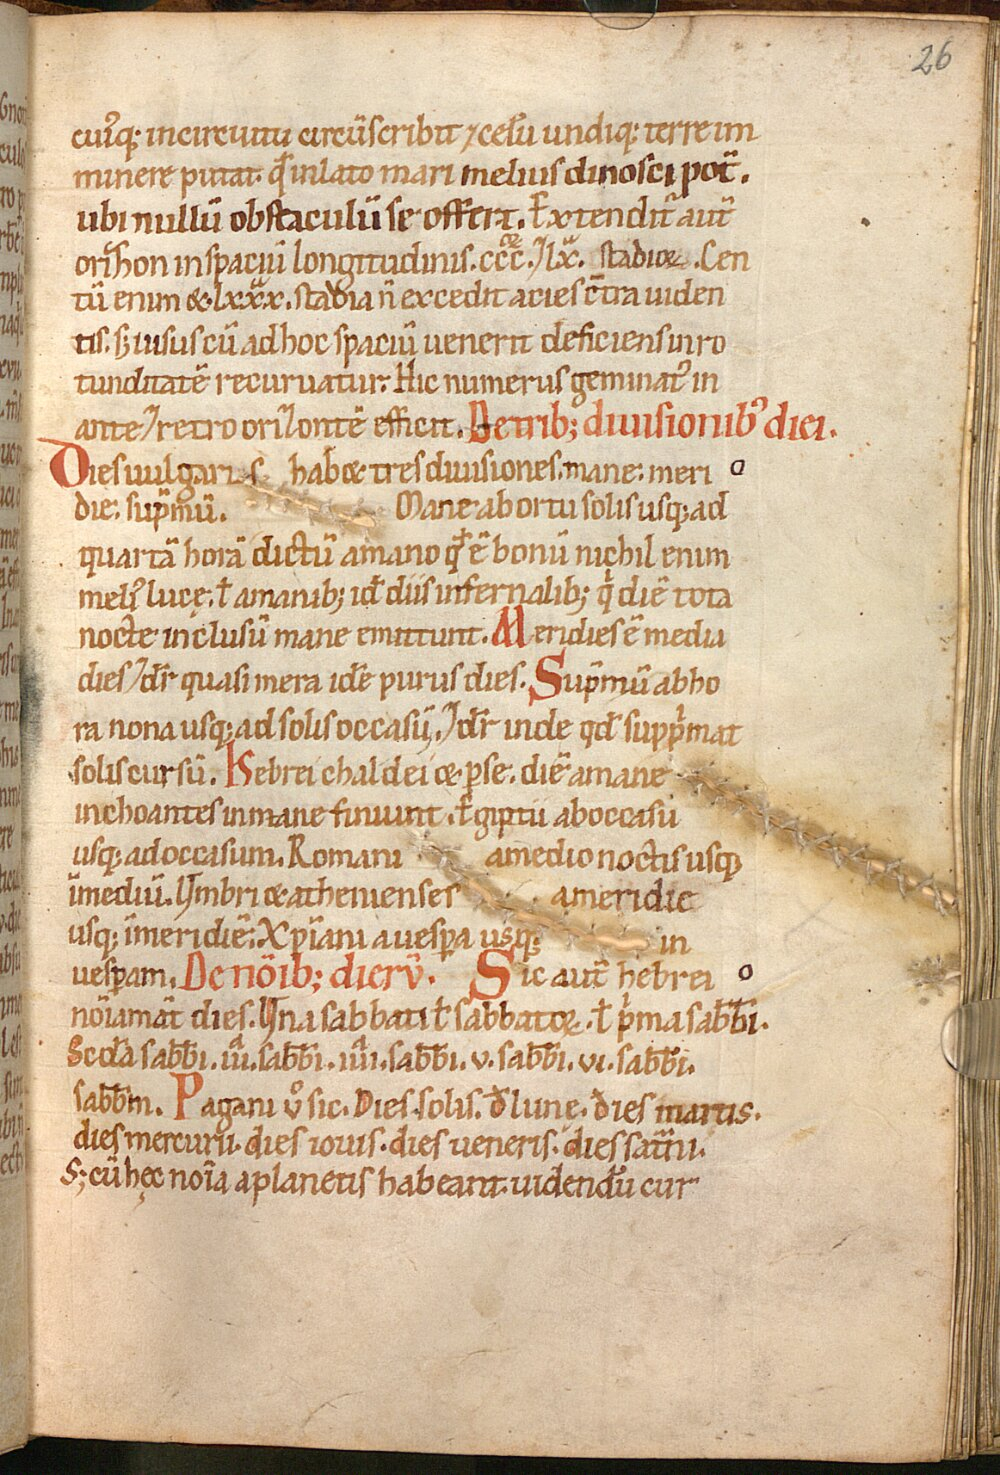 26
cuiꝰq; incircuitu circūscribit ⁊ celū undiq; terre im
minere putat. qđ inlato mari melius dinosci pot̄.
ubi nullū obstaculū se offert. Extendit̄ aut̄
orizhon inspaciū longitudinis. ccc. ⁊ lx. stadioꝝ. Cen
tū enim & lxxx. stadia n̄ excedit acies ct̄ra uiden
tis. s; uisus cū adhoc spaciū uenerit deficiens in ro
tunditatē recuruatur. Hic numerus geminatꝰ in
ante ⁊ retro orizontē efficit. De trib; diuisionibꝰ diei.
Dies uulgaris habet tres diuisiones. mane: meri
die: sup̄mū. Mane ab ortu solis usq; ad
quartā horā dictū amano qđ ē bonū nichil enim
meliꝰ lucę. ł amanib; id diis infernalib; q̄ diē tota
nocte inclusū mane emittunt. Meridies ē mediꝰ
dies ⁊ dr̄ quasi mera idē purus dies. Sup̄mū abho
ra nona usq; ad solis occasū, ⁊ dr̄ inde qd̄ suppͥmat
solis cursū. Hebrei chaldei et ꝑse. diē amane
inchoantes inmane finiunt. Egiptii aboccasu
usq; ad occasum. Romani amedio noctis usq;
īmediū. Vmbri et athenienses ameridie
usq; īmeridiē: Xp̄iani auespa usq; in
uesꝑam. De nōīb; dierū. Sic aut̄ hebrei
nōīamāt dies. Vna sabbati ł sabbatoꝝ. ł pͥma sab̄b̄i.
Scd̄a sab̄b̄i. iii. sab̄b̄i. iiii. sab̄b̄i. v. sab̄b̄i. vi. sab̄b̄i.
sab̄b̄m. Pagani ū sic. Dies solis. đ lune. đies martis.
dies mercurii. dies iouis. dies ueneris. dies sat̄ni.
S; cū hęc nōīa aplanetis habeant. uidendū cur